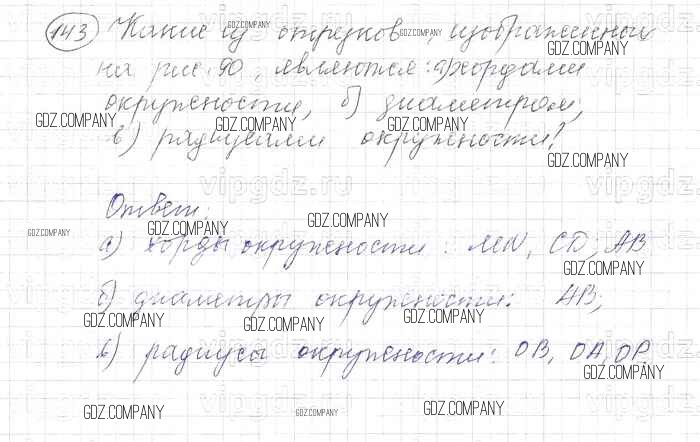 143 Какие из отрезков, изображенных
на рис. 90, являются: а) хордами
окружности, б) диаметром,
в) радиусами окружности?
Ответ:
а) хорды окружности: MN, CD, AB
б) диаметры окружности: AB;
в) радиусы окружности: OB, OA, OP